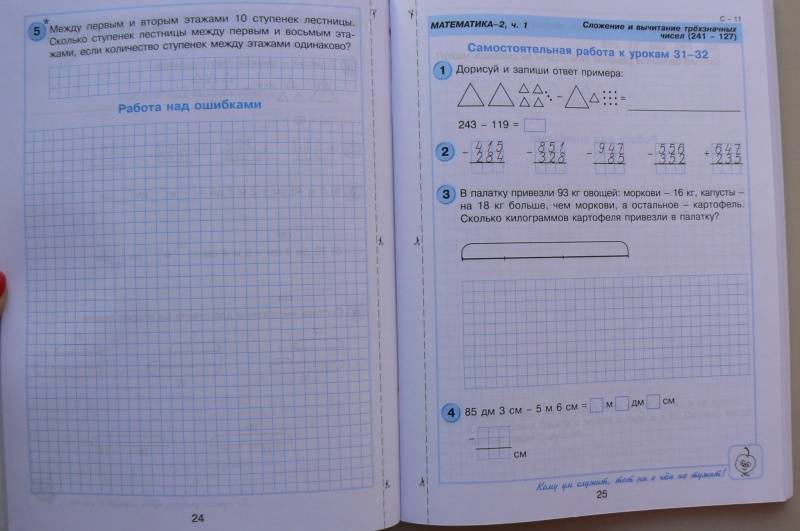 5* Между первым и вторым этажами 10 ступенек лестницы.
Сколько ступенек лестницы между первым и восьмым эта-
жами, если количество ступенек между этажами одинаково?
Работа над ошибками
24
С – 11
МАТЕМАТИКА–2, ч. 1
Сложение и вычитание трёхзначных
чисел (241 – 127)
Самостоятельная работа к урокам 31–32
1 Дорисуй и запиши ответ примера:
– =
243 – 119 =
2 – 415 – 851 – 947 – 556 + 647
284 328 85 352 235
3 В палатку привезли 93 кг овощей: моркови – 16 кг, капусты –
на 18 кг больше, чем моркови, а остальное – картофель.
Сколько килограммов картофеля привезли в палатку?
4 85 дм 3 см – 5 м 6 см = м дм см
–
см
Кому ум служит, тот ни о чём не тужит!
25